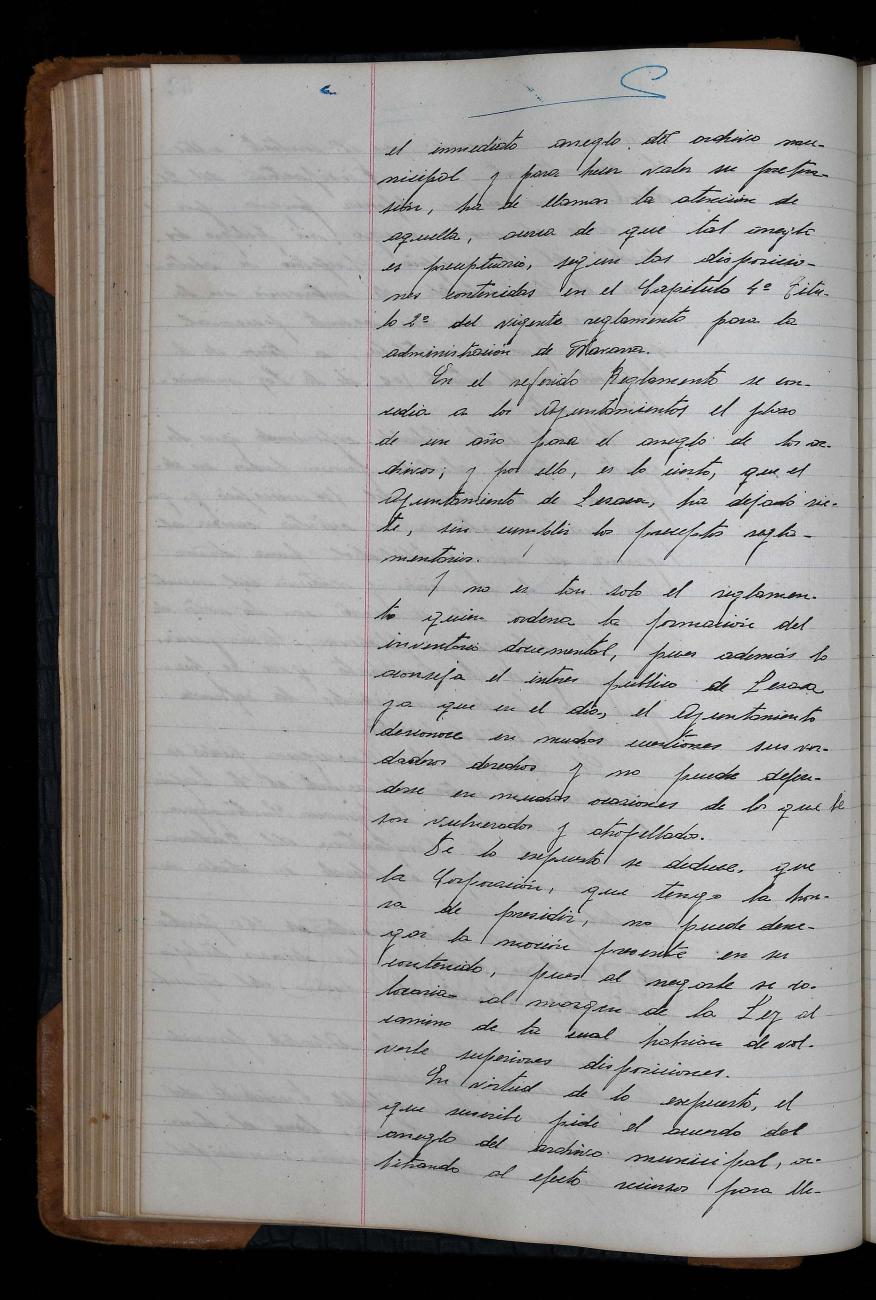 el inmediato arreglo del archivo mu-
nicipal y para hacer valer su preten-
sión, ha de llamar la atención de
aquella, acerca de que tal arreglo
es preceptuario, segun las disposicio-
nes contenidas en el Capitulo 4º Titu-
lo 2º del vigente reglamento para la
administración de Navarra.
En el referido Reglamento se con-
cedia a los Ayuntamientos el plazo
de un año para el arreglo de los ar-
chivos; y por ello, es lo cierto, que el
Ayuntamiento de Lesaca, ha dejado sie-
te, sin cumplir los preceptos regla-
mentarios.
Y no es tan solo el reglamen-
to quien ordena la formación del
inventario documental, pues además lo
aconseja el interes público de Lesaca
ya que en el dia, el Ayuntamiento
desconoce en muchas cuestiones sus ver-
daderos derechos y no puede defen-
derse en muchas ocasiones de lo que le
son vulnerados y atropellados.
De lo expuesto se deduce, que
la Corporación, que tengo la hon-
ra de presidir, no puede dene-
gar la moción presente en su
contenido, pues al negarle se co-
locaria al margen de la Ley al
camino de la cual habrian de vol-
verle superiores disposiciones.
En virtud de lo expuesto, el
que suscribe pide el acuerdo del
arreglo del archivo municipal, ar-
bitrando al efecto recursos para lle-